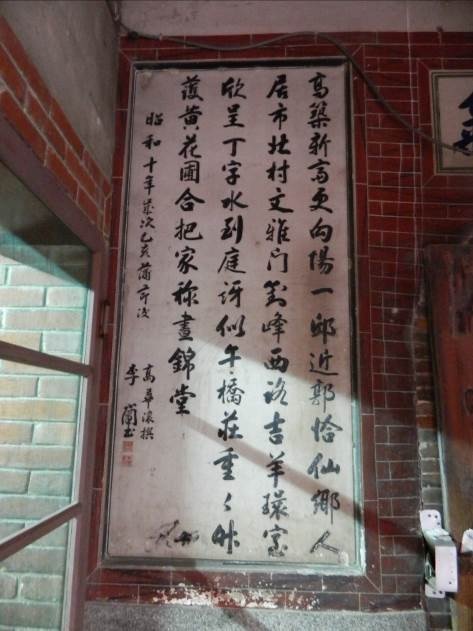 高築新高更向陽一邨近郭恰仙鄉人
居市北村文雅門對峰西路吉羊環室
欣呈丁字水到庭訝似午橋莊重々竹
護黃花圃合把家稱晝錦堂
昭和十年歲次乙亥蒲節後
高華滾撰
李蘭